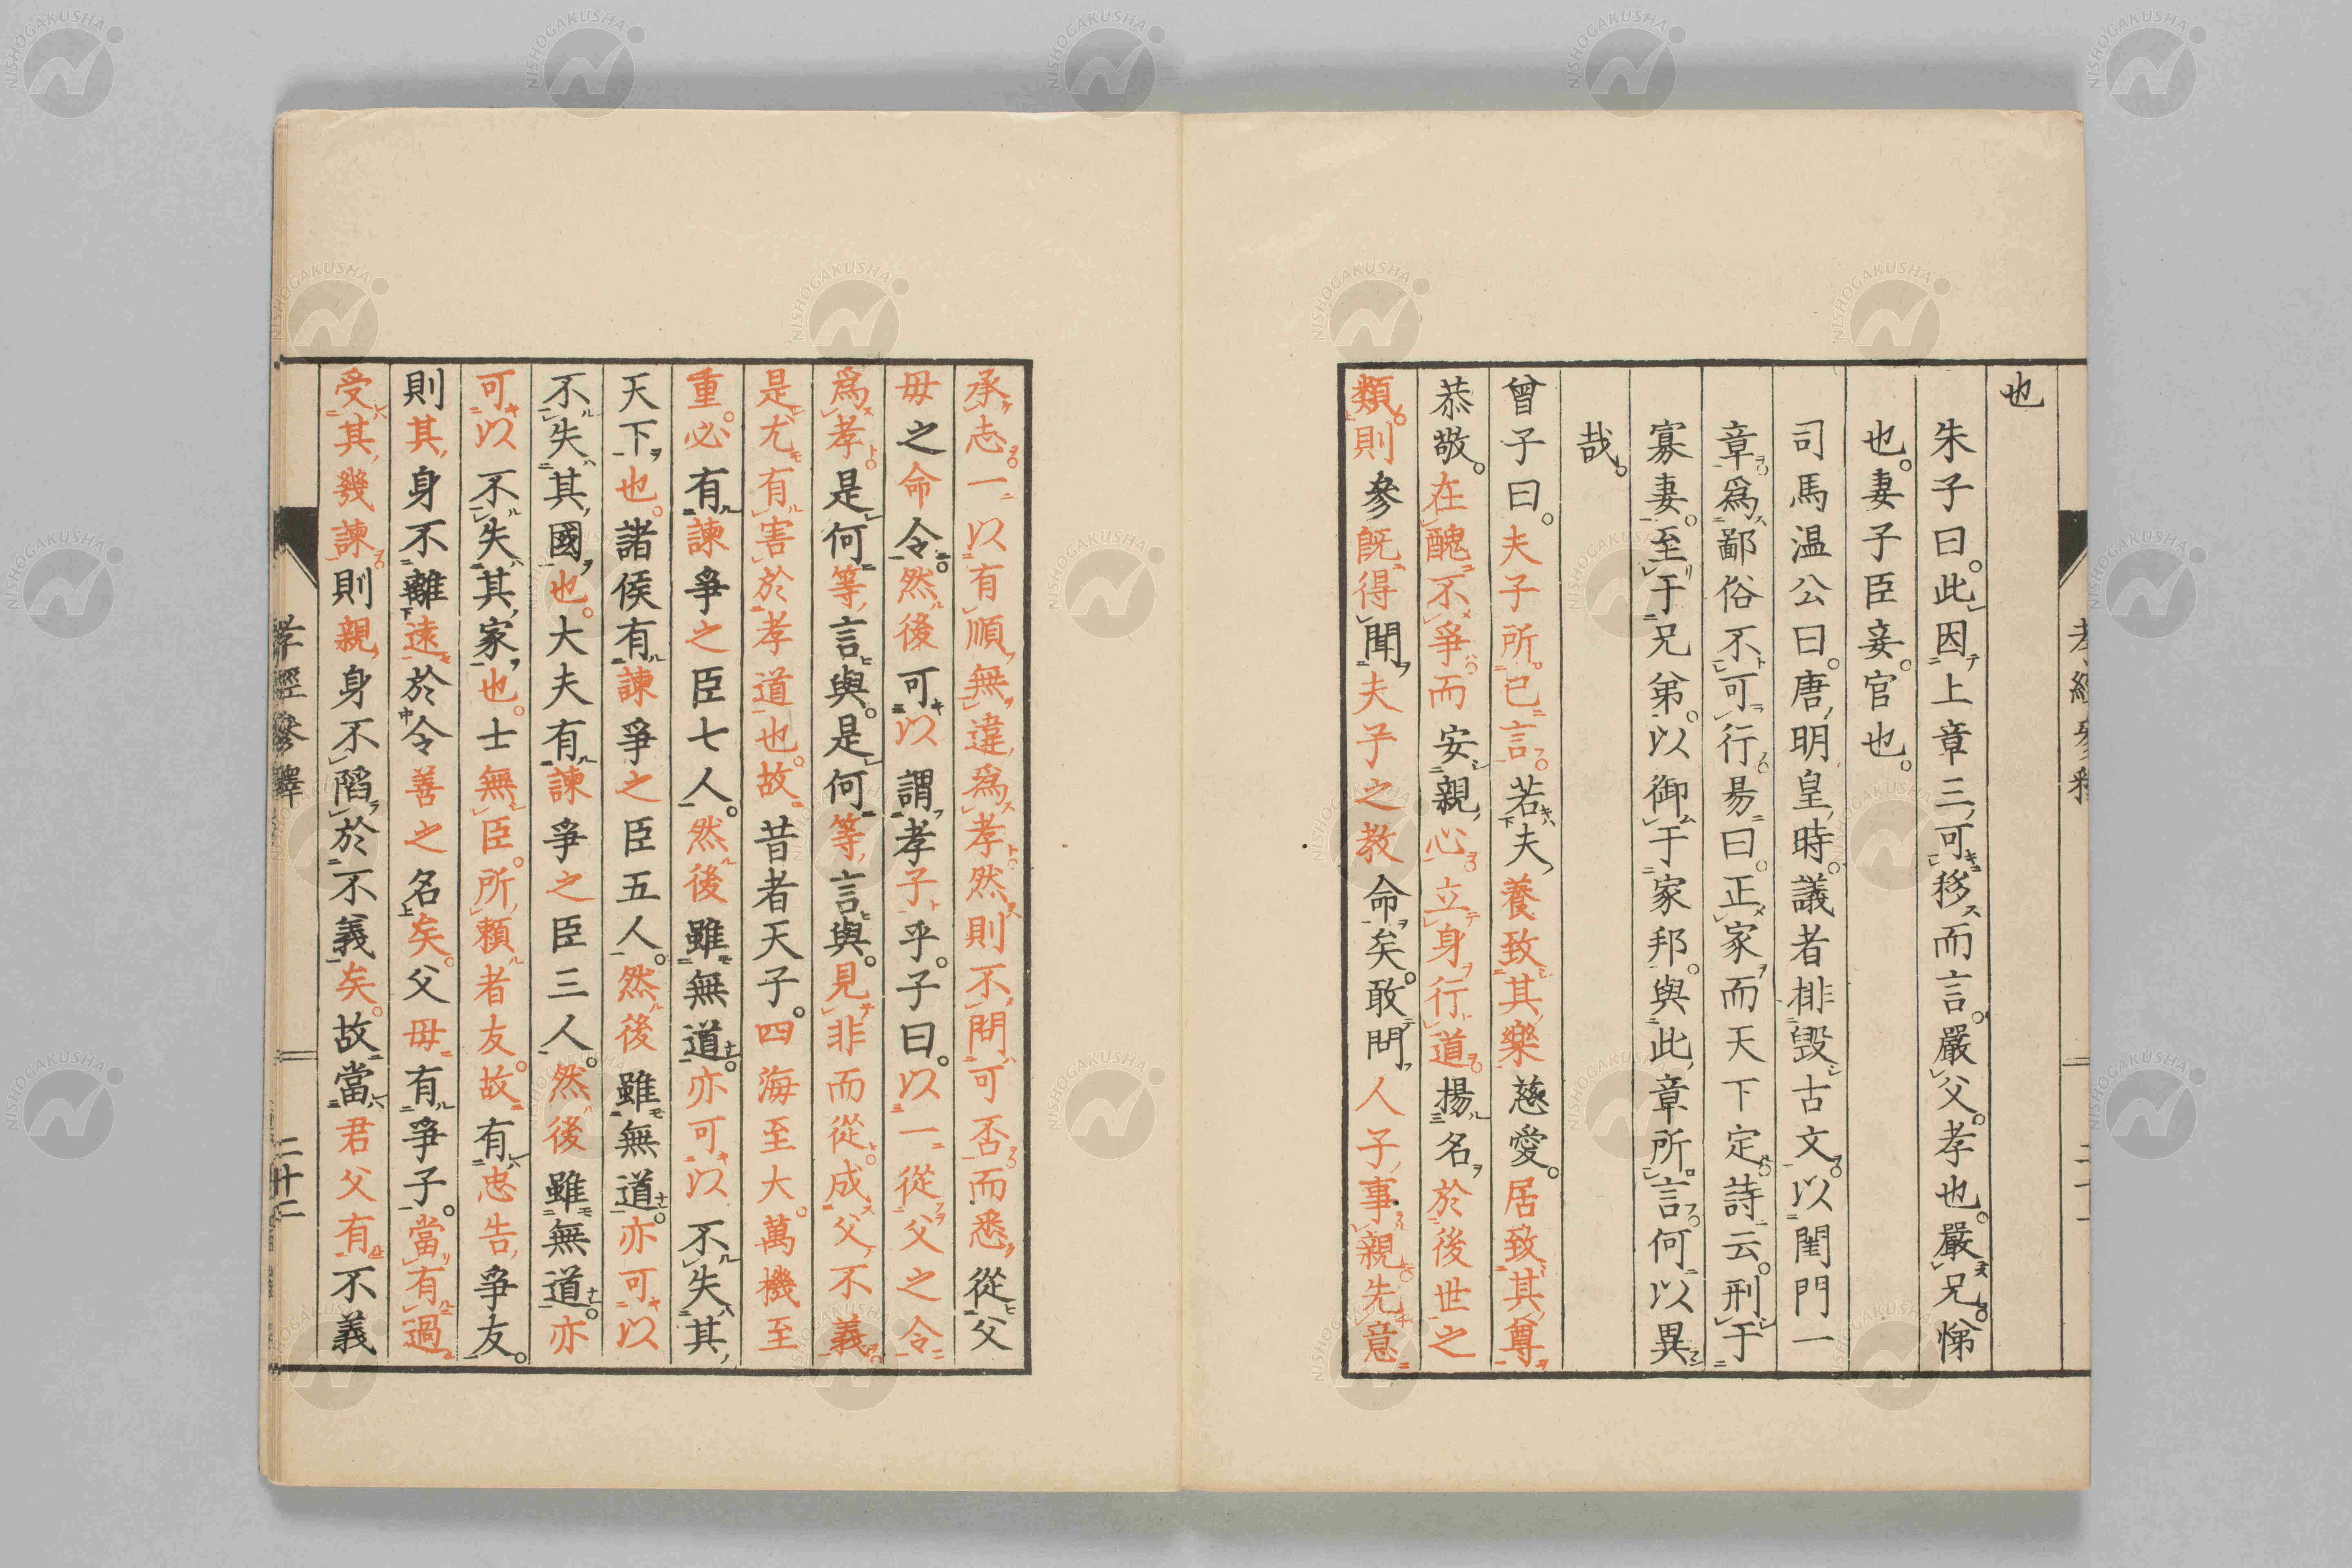 也
朱子曰此因上章三可移而言嚴父孝也嚴兄悌
也妻子臣妾官也
司馬温公曰唐明皇時議者排毀古文以閨門一
章爲鄙俗不可行易曰正家而天下定詩云刑于
寡妻至于兄弟以御于家邦與此章所言何以異
哉
曾子曰夫子所已言若夫養致其樂慈愛居致其尊
恭敬在醜不爭而安親心立身行道揚名於後世之
類則參既得聞夫子之教命矣敢問人子事親先意
承志一以有順無違爲孝然則不問可否而悉從父
毋之命令然後可以謂孝子乎子曰以一從父之令
爲孝是何等言與是何等言與見非而從成父不義
是尤有害於孝道也故昔者天子四海至大萬機至
重必有諫爭之臣七人然後雖無道亦可以不失其
天下也諸侯有諫爭之臣五人然後雖無道亦可以
不失其國也大夫有諫爭之臣三人然後雖無道亦
可以不失其家也士無臣所賴者友故有忠告爭友
則其身不離遠於令善之名矣父毋有爭子當有過
受其幾諫則親身不陷於不義矣故當君父有不義
孝經參釋
二十二
NISHOGAKUSHA